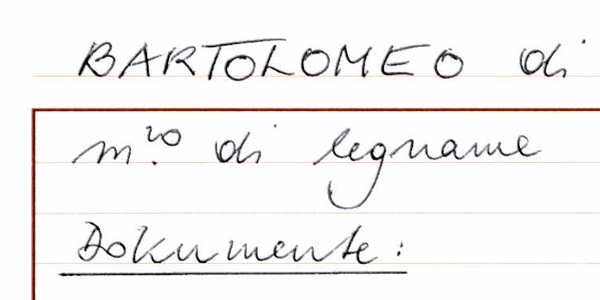 BARTOLOMEO di
m.ro di legname
Dokumente: